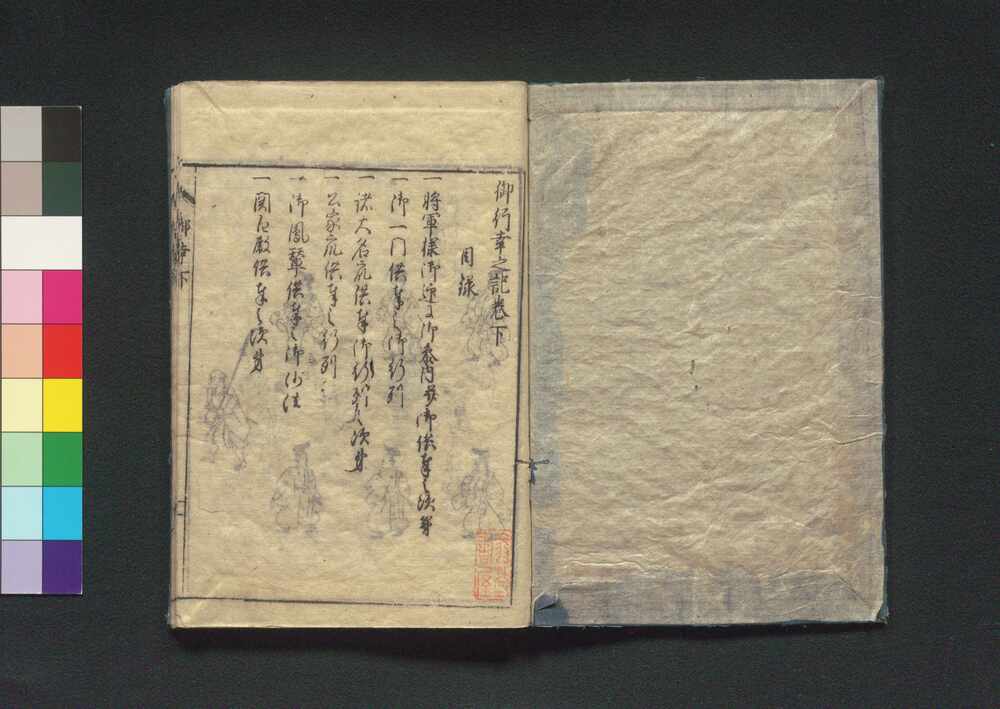 御行幸之記巻下
目録
一 将軍様御迎に御参内并御供奉之次第
一 御一門供奉之御行列
一 諸大名衆供奉御行列之次第
一 公家衆供奉之行列
一 御鳳輦供奉之御行法
一 関白殿供奉之次第
御幸下